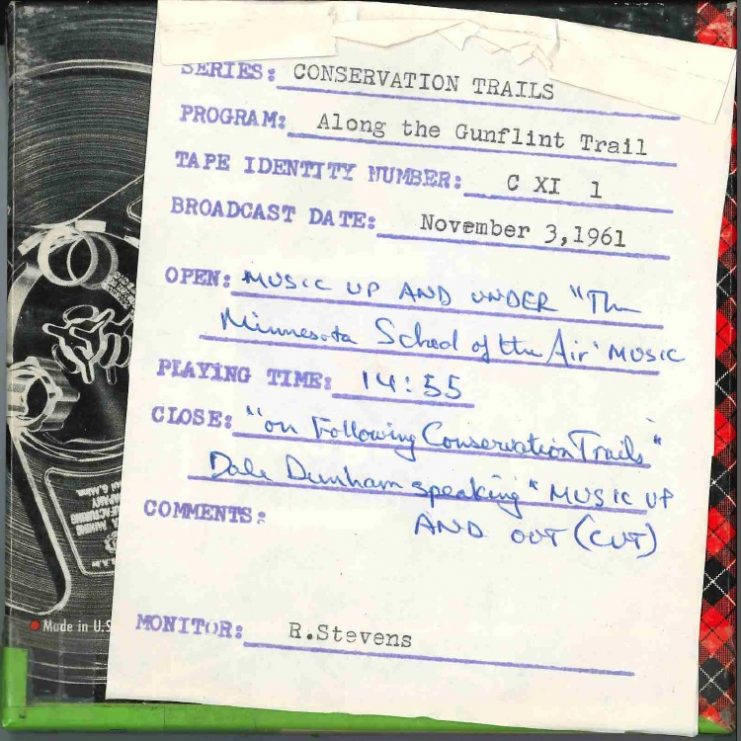 SERIES: CONSERVATION TRAILS
PROGRAM: Along the Gunflint Trail
TAPE IDENTITY NUMBER: C XI 1
BROADCAST DATE: November 3,1961
OPEN: MUSIC UP AND UNDER "The
Minnesota School of the Air' MUSIC
PLAYING TIME: 14:55
CLOSE: "on Following Conservation Trails"
Dale Dunham speaking" MUSIC UP
COMMENTS: AND OUT (CUT)
MONITOR: R.Stevens
Made in U.S